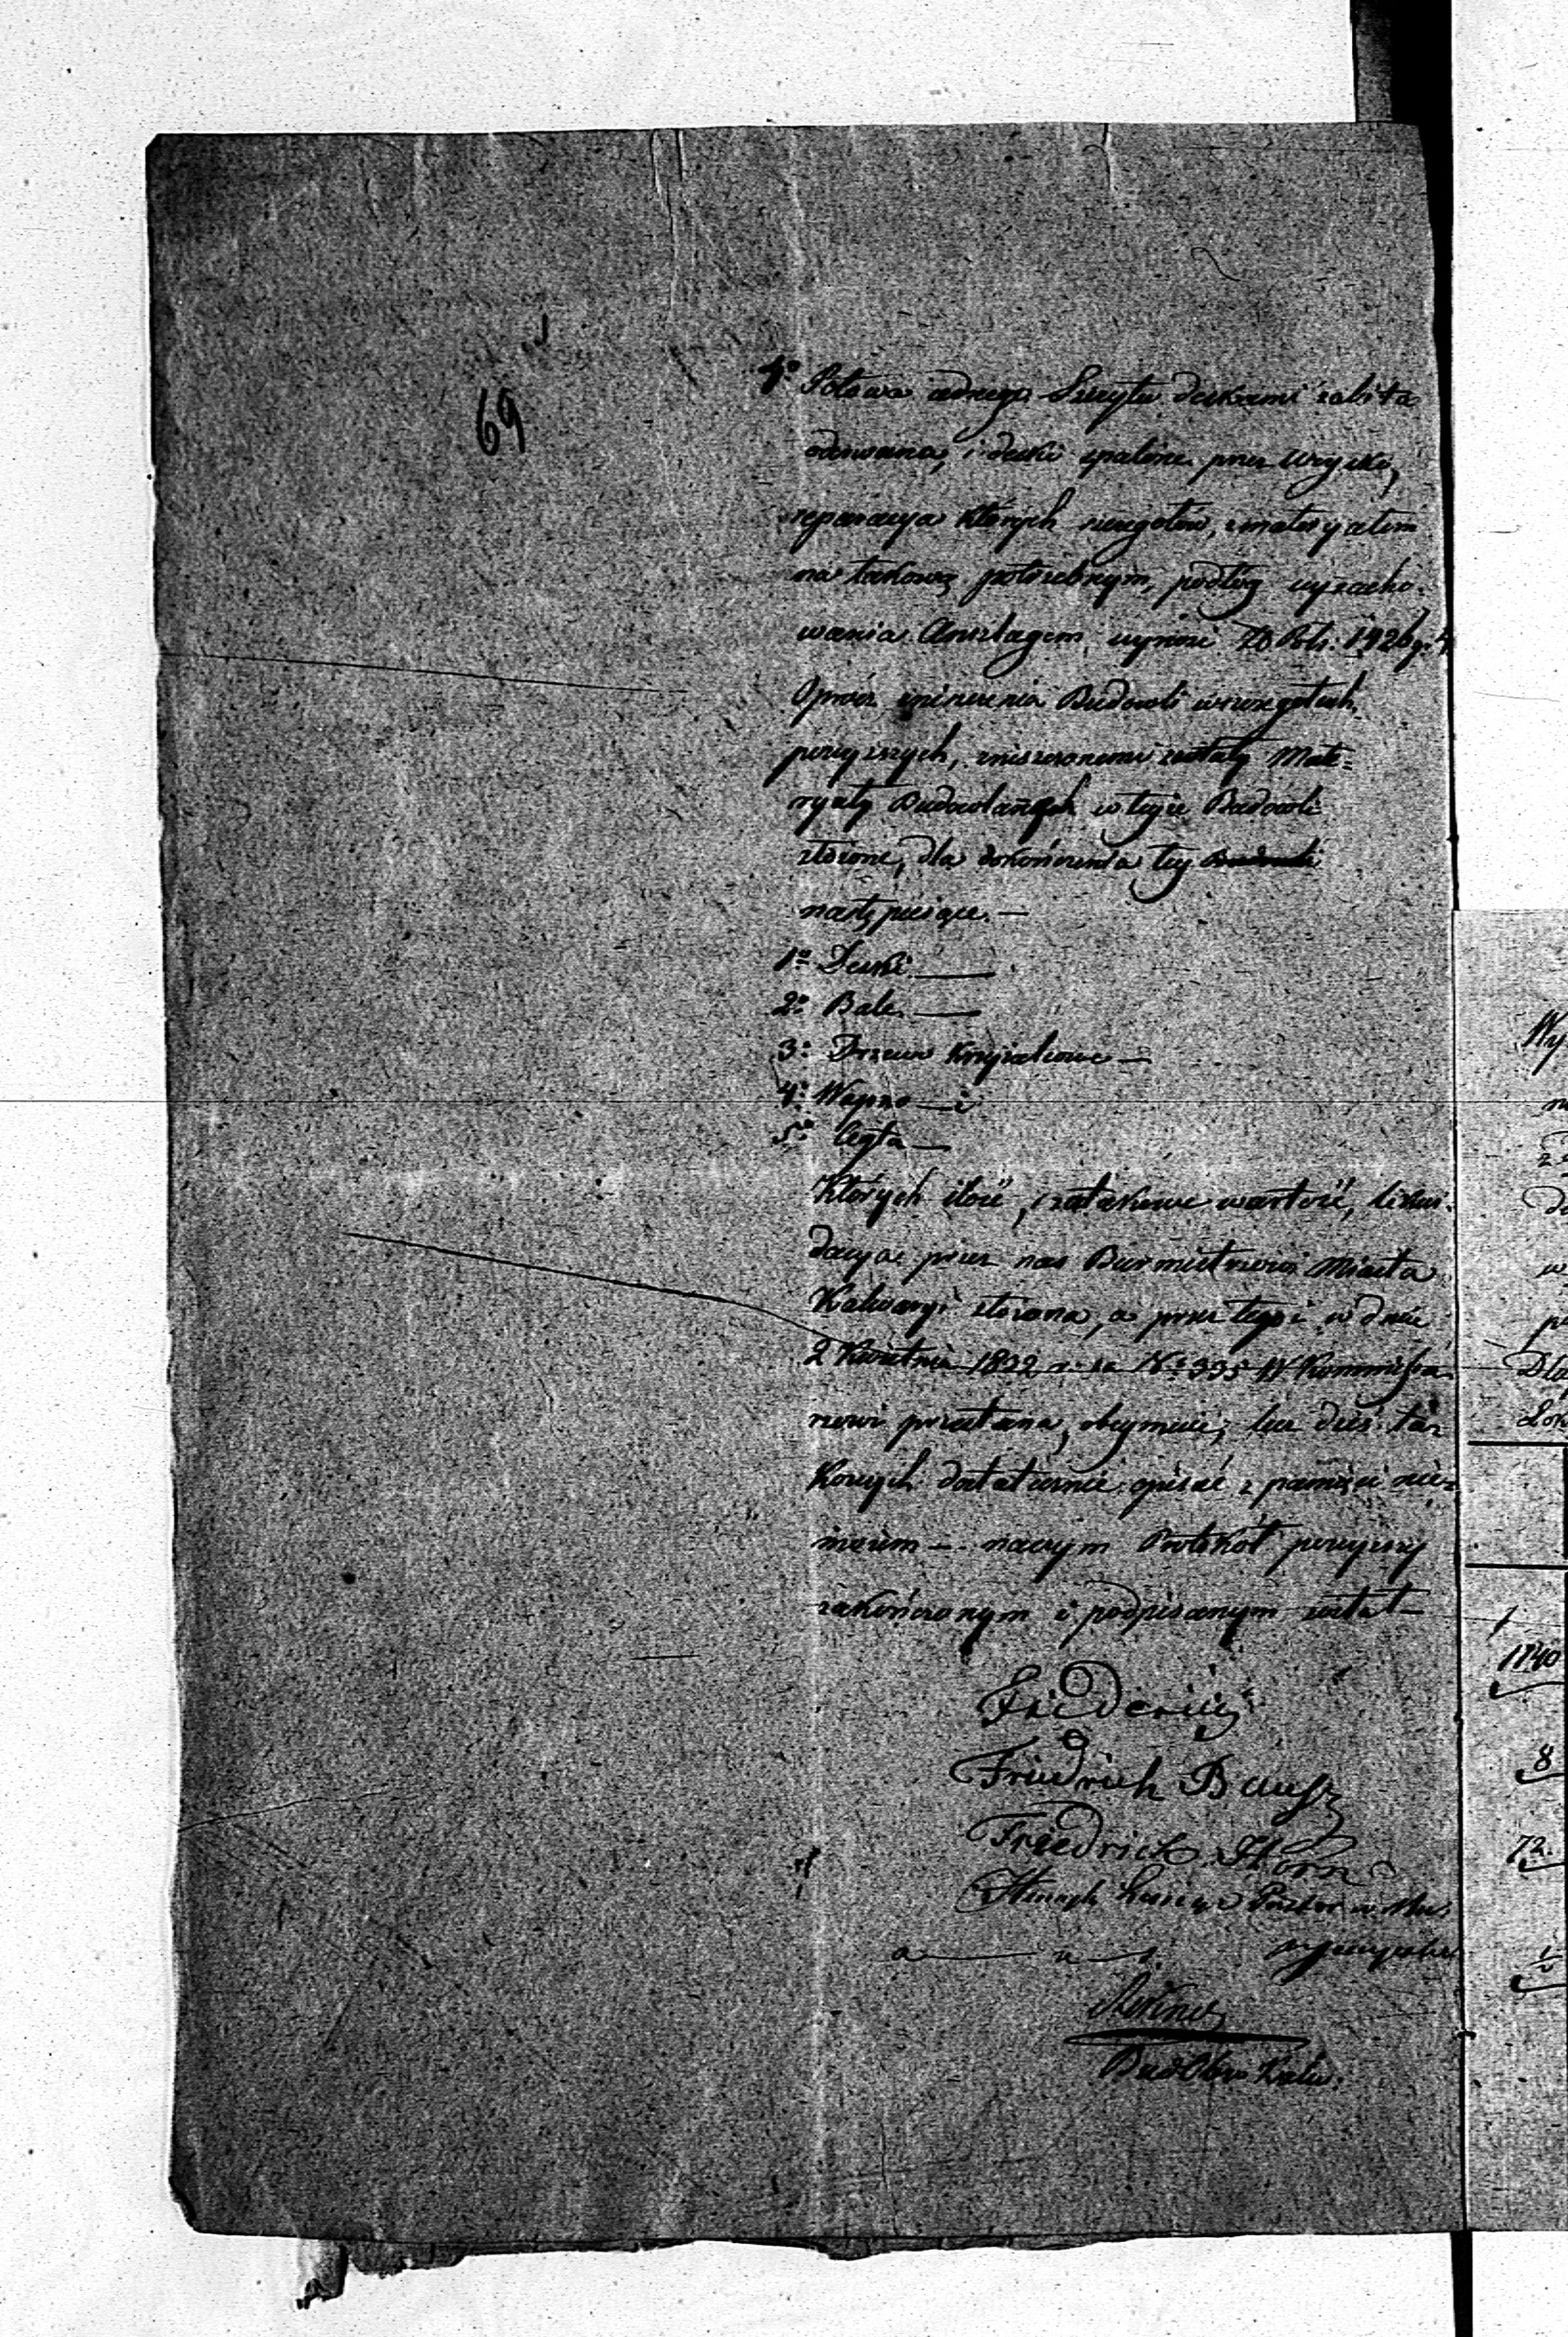 69
4º Połowa jednego Szczytu deskami zabita
oderwana, i deski spalone przez Woysko,
reparacya których szczegułów, z materyałem
na takową potrzebnym, podług wyracho-
wania Anszlagem wynosi Zł Pols: 1926 g. 4
Oprócz zniszczenia Budowli w szczegułach
powyższych, zniszczonemi zostały Mate=
ryały Budowlanych w teyże Budowli
złożone, dla dokończenia tey
następuiące. —
1º Deski —
2º Bale —
3º Drzewo Krzyżulcowe —
4º Wapno — i
5º Cegła —
Których ilość, i za takowe wartość, likwi-
dacya przez nas Burmistrzowi Miasta
Kalwaryi złożona, a przez tegoż w dniu
2 Kwietnia 1832 r. za Nº 335 W Kommissa-
rzowi przesłana, obeymuie, lecz dziś ta=
kowych dostatecznie opisać z pamięci nie=
możem — na czym Protokół powyższy
zakończonym i podpisanym został —
Friderici
Friedrich Bausz
Friedrich Horn
Pastor w
Bud Obwo Kalw:
Wy
1140
8
72.